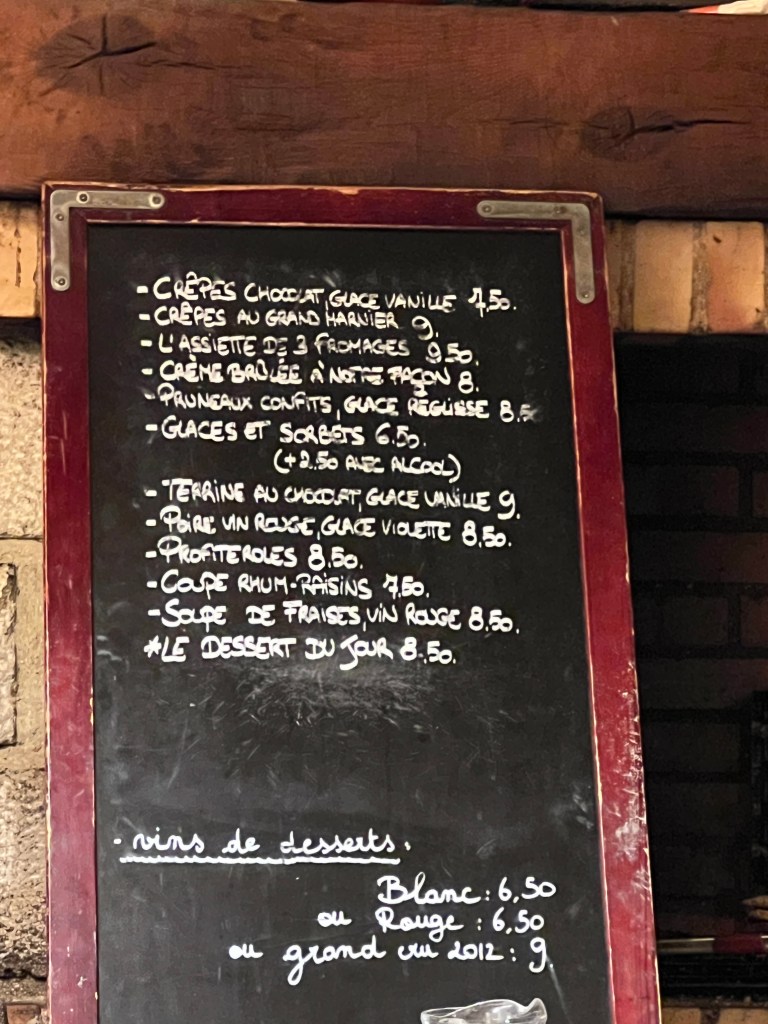 - CRÊPES CHOCOLAT, GLACE VANILLE 7,50.
- CRÊPES AU GRAND MARNIER 9.
- L'ASSIETTE DE 3 FROMAGES 9.50.
- CRÈME BRÛLÉE À NOTRE FAÇON 8.
- PRUNEAUX CONFITS, GLACE RÉGLISSE 8,50
- GLACES ET SORBETS 6.50.
(+2.50 AVEC ALCOOL)
- TERRINE AU CHOCOLAT, GLACE VANILLE 9.
- POIRE VIN ROUGE, GLACE VIOLETTE 8,50.
- PROFITEROLES 8.50.
- COUPE RHUM-RAISINS 7,50.
- SOUPE DE FRAISES, VIN ROUGE 8,50.
*LE DESSERT DU JOUR 8.50.
- vins de desserts.
Blanc : 6,50
ou Rouge : 6,50
ou grand cru 2012 : 9.